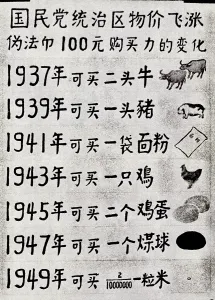 国民党统治区物价飞涨
伪法币100元购买力的变化
1937年可买二头牛
1939年可买一头豬
1941年可买一袋面粉
1943年可买一只鸡
1945年可买二个鸡蛋
1947年可买一个煤球
1949年可买 2/10000000 一粒米